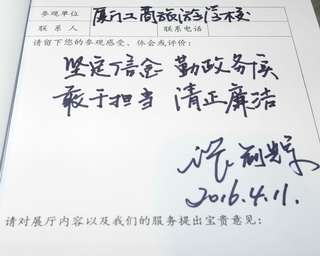 参观单位 厦门工商旅游学校
联系人 联系电话
请留下您的参观感受、体会或评价:
坚定信念 勤政务实
敢于担当 清正廉洁
2016.4.11.
请对展厅内容以及我们的服务提出宝贵意见: